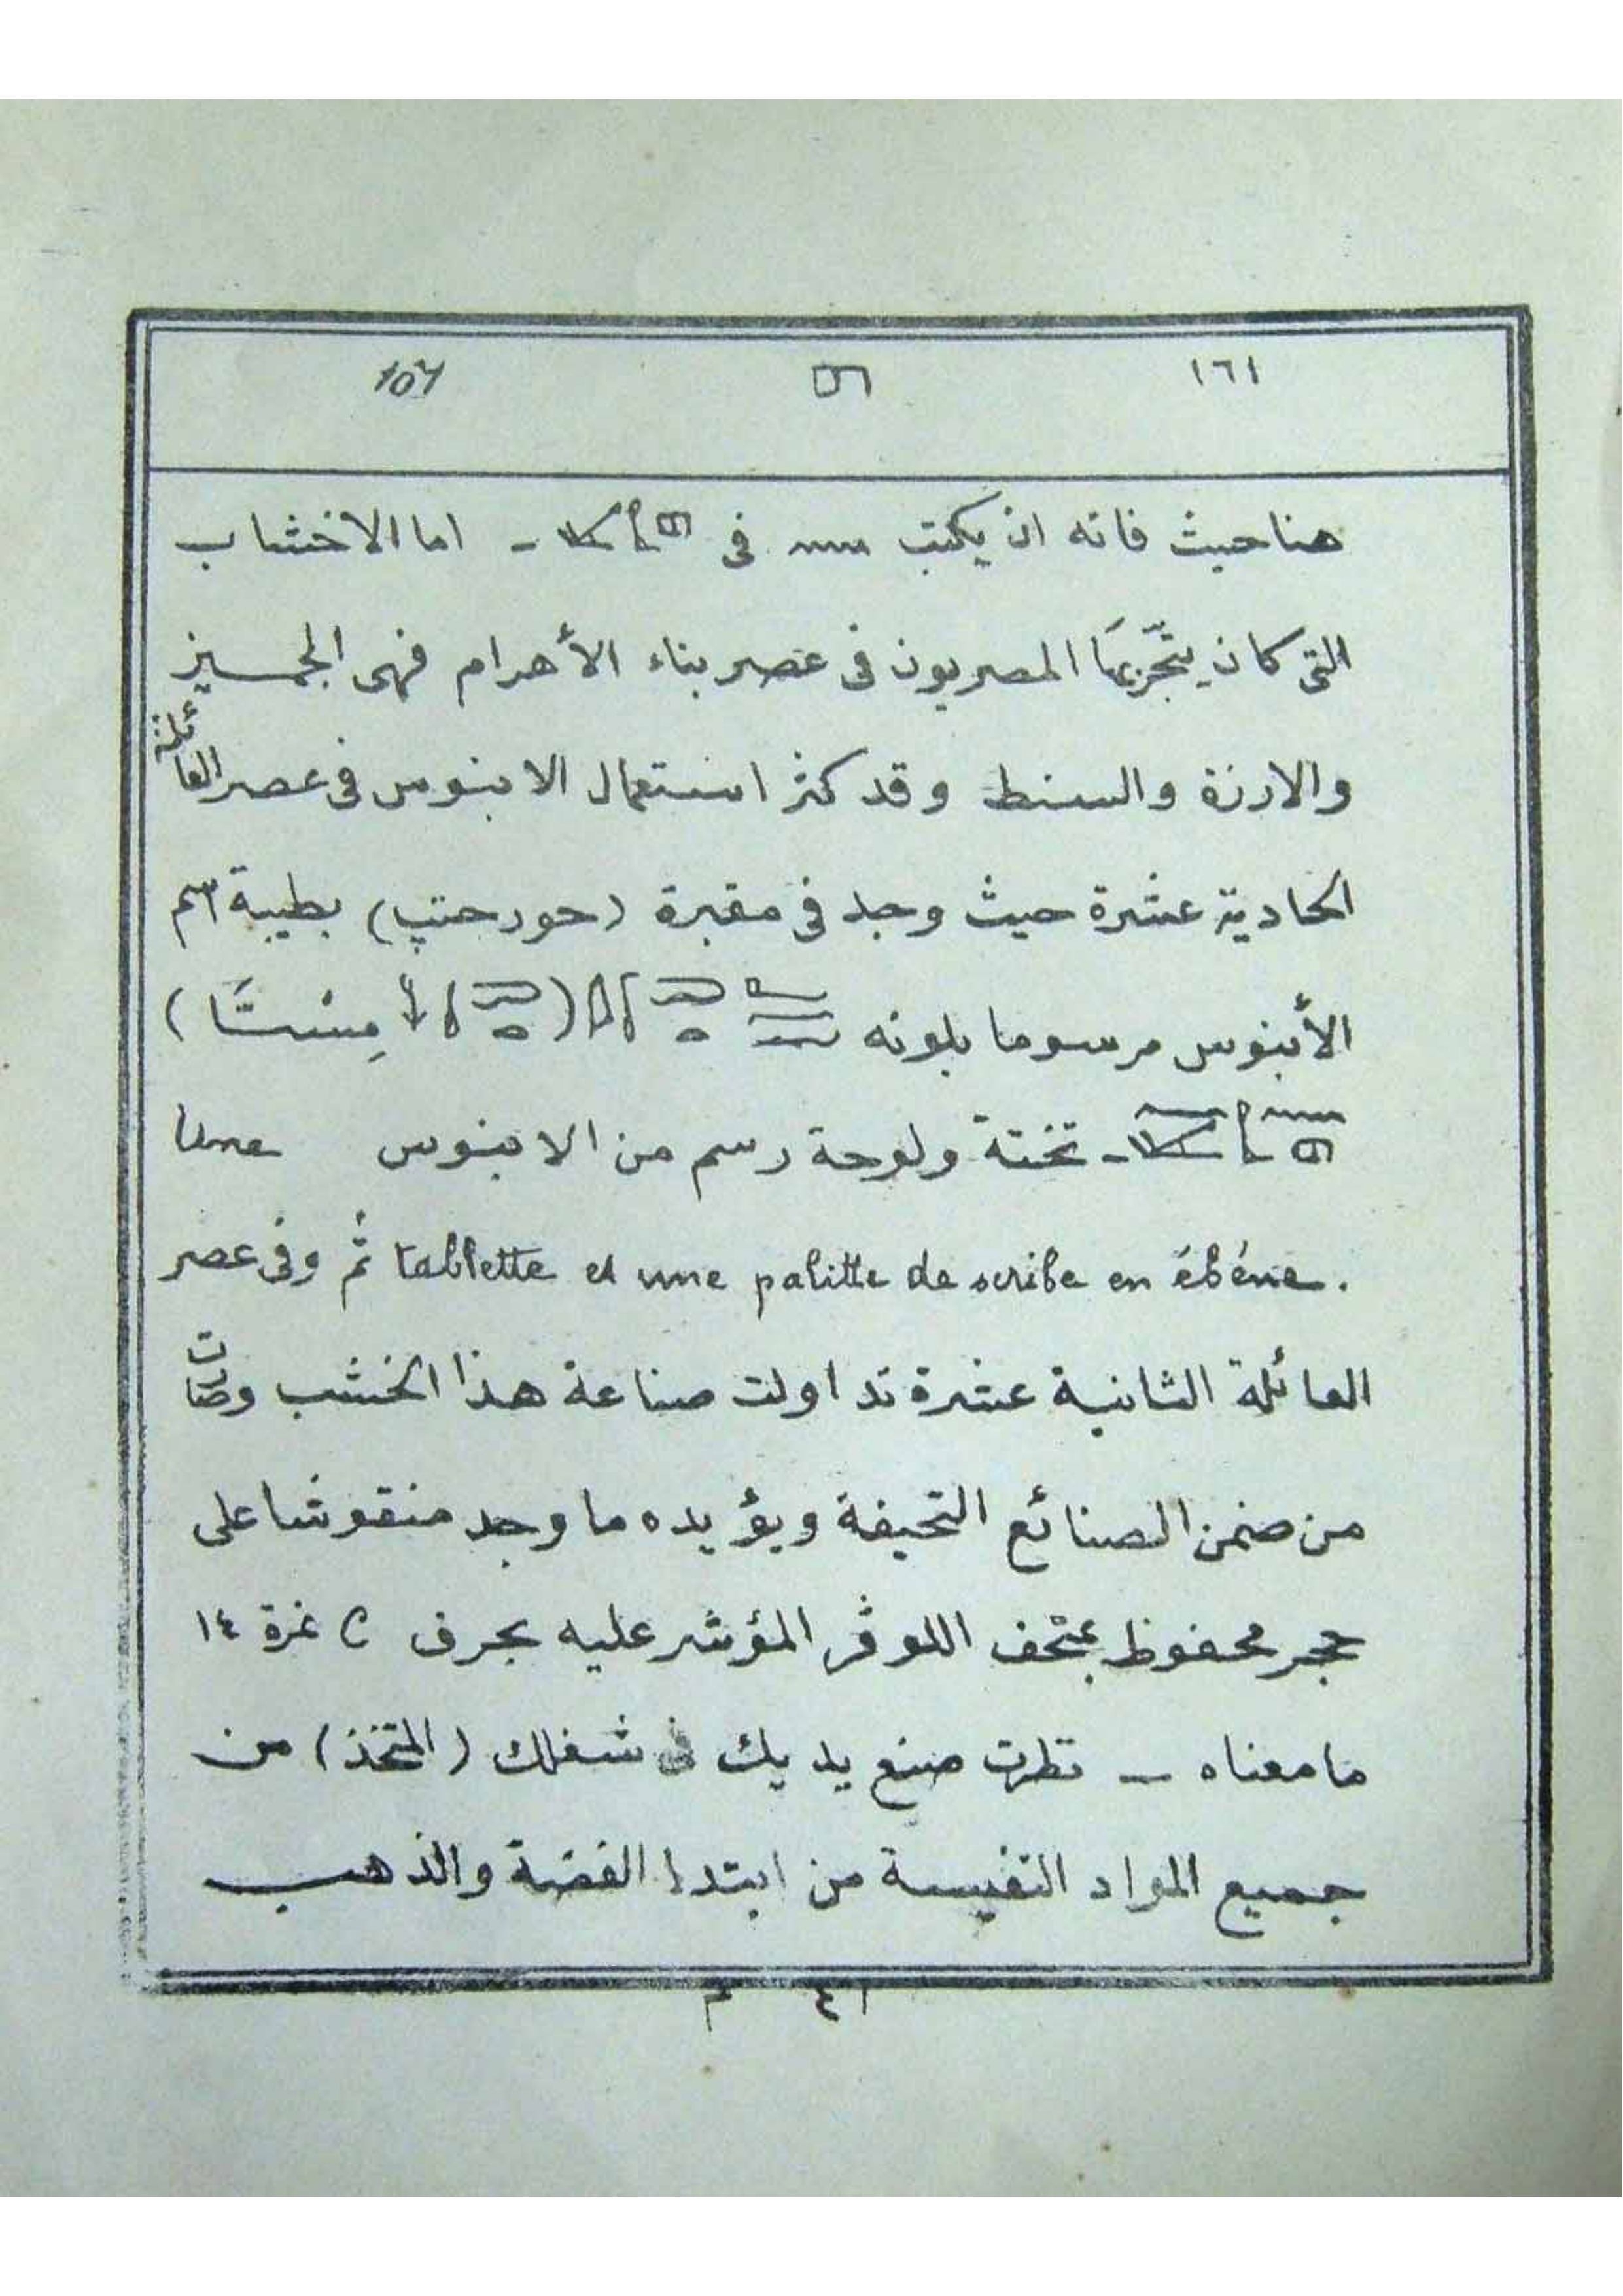 ١٦١
هنا حيث فاته ان يكتب في - اما الاخشاب
التى كان يتّجر بهَا المصريون فى عصر بناء الأهرام فهى الجميز
والارزة والسنط وقد كثر استعمال الابنوس فى عصر العائلة
الحادية عشرة حيث وجد فى مقبرة (حور حتپ) بطيبة اسم
الأبنوس مرسوما بلونه ( مِسْتَا )
- تختة ولوحة رسم من الابنوس Une
tablette et une palitte de scribe en ébéne. ثم وفى عصر
العائلة الثانية عشرة تداولت صناعة هذا الخشب وصارت
من ضمن الصنائع التحيفة ويؤيده ما وجد منقوشا على
حجر محفوظ بمتحف اللوڤر المؤشر عليه بحرف C نمرة ١٤
ما معناه - نظرت صنع يديك فى شغلك (المتخذ) من
جميع المواد النفيسة من ابتدا الفضة والذهب
٤١ م